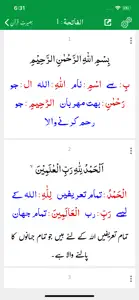 6:31
الفاتحة : ١
بصیرت قرآن
1
بِسْمِ اللّٰهِ الرَّحْمٰنِ الرَّحِیْمِ
بِ: سے اسْمِ: نام اللّٰهِ: الله الـ: جو
رَحْمٰنِ: بہت مہربان الرَّحِیْمِ:
رحم کرنے والا
2
اَلْحَمْدُ لِلّٰهِ رَبِّ الْعٰلَمِیْنَ
اَلْحَمْدُ: تمام تعریفیں لِلّٰهِ: الله کے
لیے رَبِّ: رب الْعَالَمِیْنَ: تمام جہان
تمام تعریفیں اللہ کے لئے ہیں جو تمام جہانوں کا
پالنے والا ہے۔
3